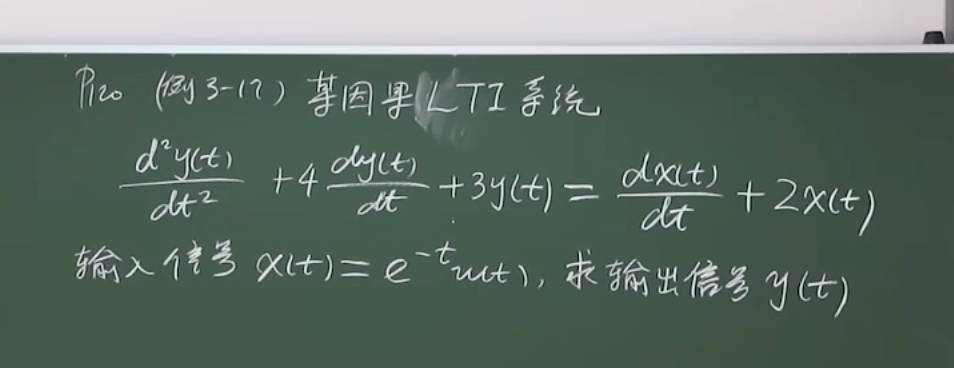 P120 (例3-17) 某因果LTI系统
d²y(t)/dt² + 4 dy(t)/dt + 3y(t) = dx(t)/dt + 2x(t)
输入信号 x(t) = e^{-t}u(t), 求输出信号 y(t)